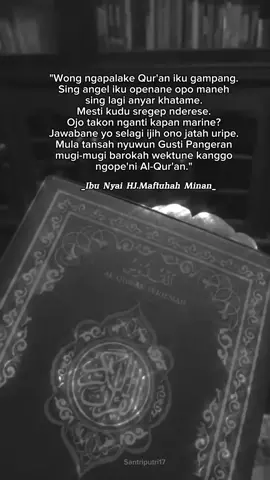 "Wong ngapalake Qur'an iku gampang.
Sing angel iku openane opo maneh
sing lagi anyar khatame.
Mesti kudu sregep nderese.
Ojo takon nganti kapan marine?
Jawabane yo selagi ijih ono jatah uripe.
Mula tansah nyuwun Gusti Pangeran
mugi-mugi barokah wektune kanggo
ngope'ni Al-Qur'an."
_Ibu Nyai HJ.Maftuhah Minan_
Santriputri17